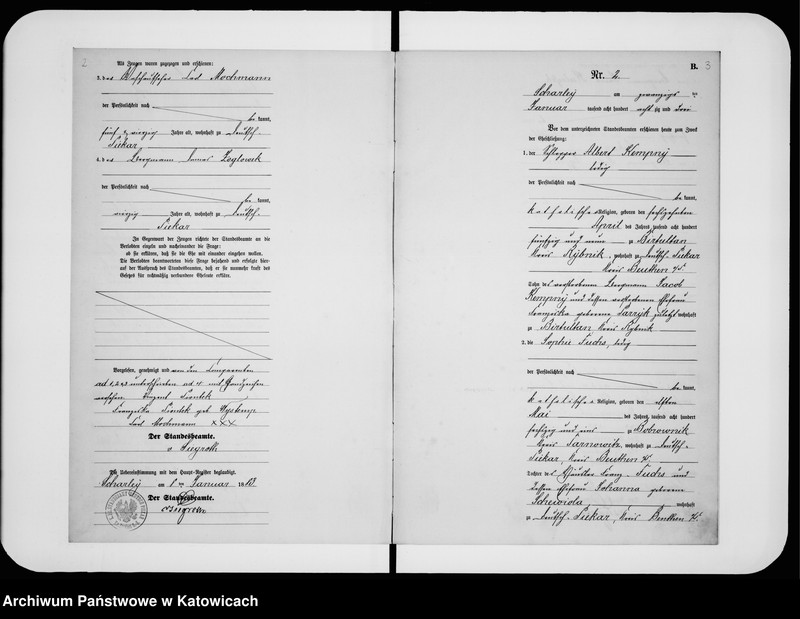 2
Als Zeugen waren zugezogen und erschienen:
3. des Carl Mochmann
der Persönlichkeit nach
be kannt,
fünf u vierzig Jahre alt, wohnhaft zu Deutsch-
Piekar
4. des Bergmann Zoglowek
der Persönlichkeit nach
be kannt,
vierzig Jahre alt, wohnhaft zu Deutsch-
Piekar
In Gegenwart der Zeugen richtete der Standesbeamte an die
Verlobten einzeln und nacheinander die Frage:
ob sie erklären, daß sie die Ehe mit einander eingehen wollen.
Die Verlobten beantworteten diese Frage bejahend und erfolgte hier-
auf der Ausspruch des Standesbeamten, daß er sie nunmehr kraft des
Gesetzes für rechtmäßig verbundene Eheleute erkläre.
Vorgelesen, genehmigt und von den Comparenten
ad 1, 2 u 3 unterschrieben ad 4 mit Handzeichen
versehen. Vinzent Piontek
Franziska Piontek geb.
Carl Mochmann XXX
Der Standesbeamte.
Die Uebereinstimmung mit dem Haupt-Register beglaubigt.
Scharley am Januar 18 83
Der Standesbeamte.
B. 3
Nr. 2.
Scharley am zwanzigs ten
Januar tausend acht hundert acht zig und drei
Vor dem unterzeichneten Standesbeamten erschienen heute zum Zweck
der Eheschließung:
1. der Schlepper Albert Kempny
ledig
der Persönlichkeit nach
be kannt,
katholischer Religion, geboren den sechszehnten
April des Jahres tausend acht hundert
fünfzig und neun zu Birtultau
Kreis Rybnik, wohnhaft zu Deutsch-Piekar
Kreis Beuthen O/S.
Sohn des verstorbenen Bergmann Jacob
Kempny und dessen verstorbenen Ehefrau
Franziska geborene zuletzt wohnhaft
zu Birtultau Kreis Rybnik
2. die Sophie Fuchs, ledig
der Persönlichkeit nach
be kannt,
katholischer Religion, geboren den elften
Mai des Jahres tausend acht hundert
sechszig und eins zu Bobrownik
Kreis Tarnowitz, wohnhaft zu Deutsch-
Piekar, Kreis Beuthen O/S.
Tochter des Häusler Franz Fuchs und
dessen Ehefrau Johanna geborene
wohnhaft
zu Deutsch-Piekar, Kreis Beuthen O/S.
Archiwum Państwowe w Katowicach